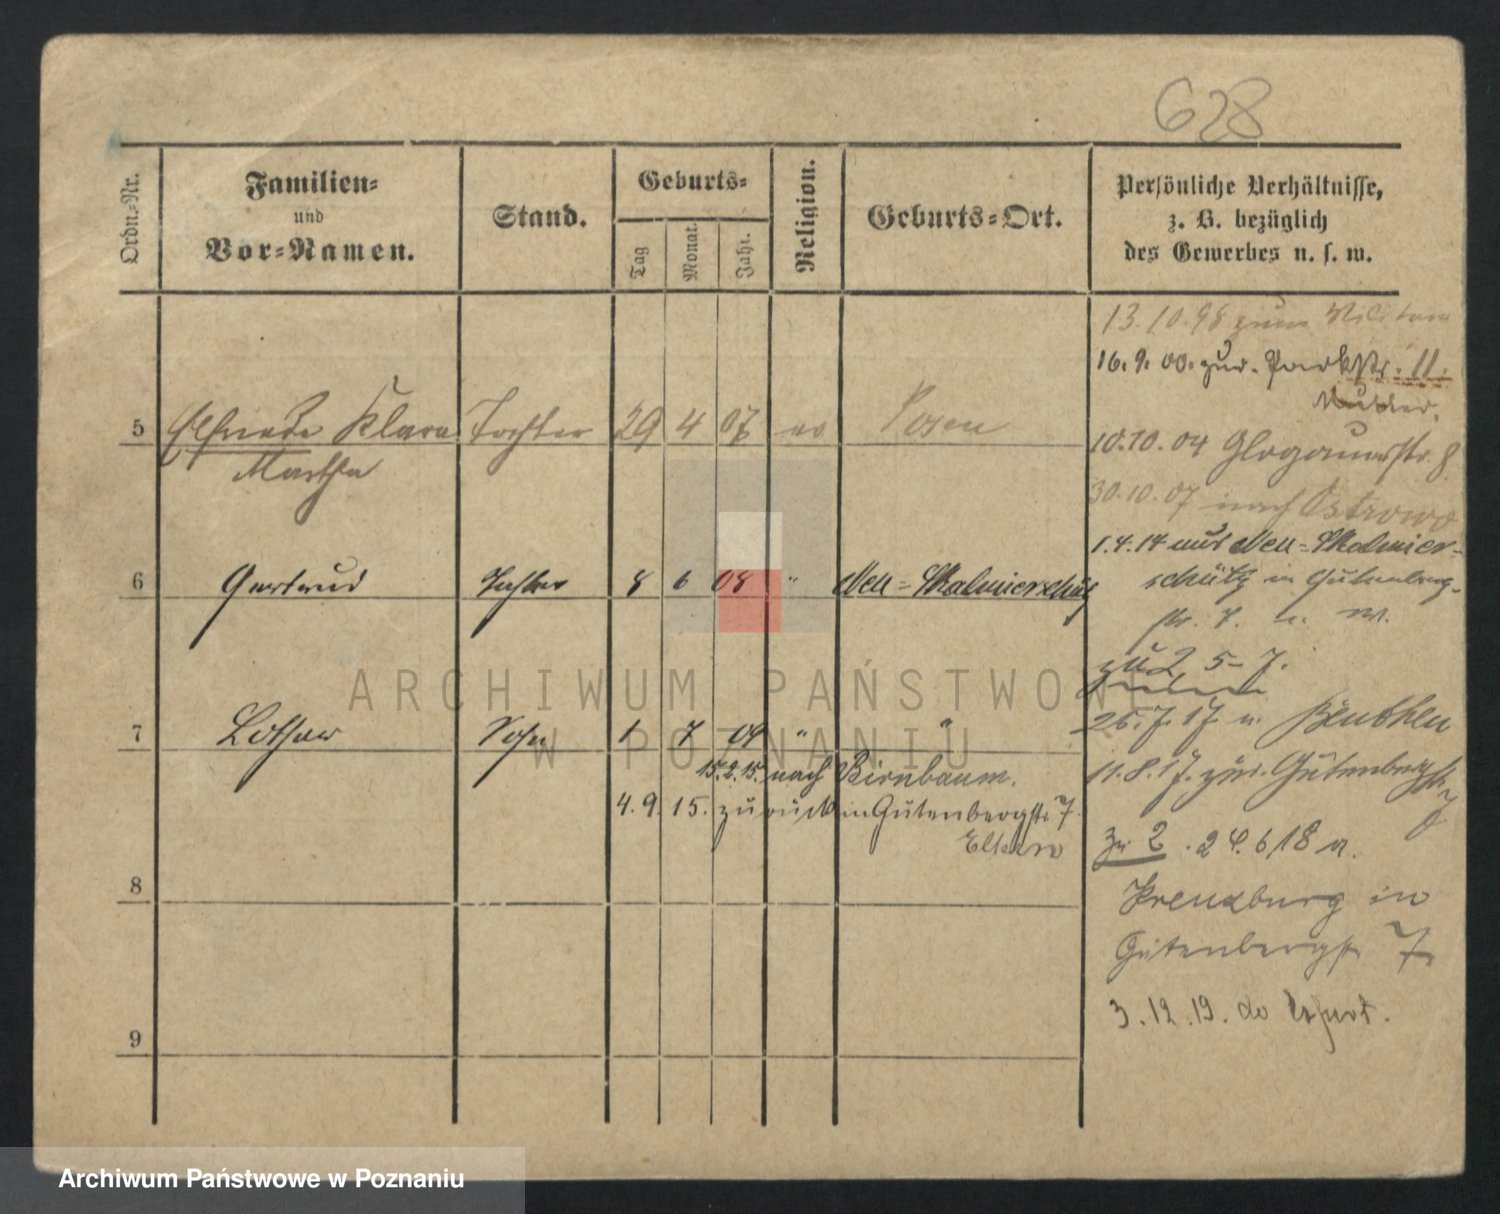 628
Ordn.-Nr.
Familien-
und
Vor-Namen.
Stand.
Geburts-
Tag
Monat.
Jahr.
Religion.
Geburts-Ort.
Persönliche Verhältnisse,
z. B. bezüglich
des Gewerbes u. s. w.
13.10.98 zum Militair
16.9.00. zur. Parkstr. 11.
Mutter.
5 Elfriede Klara Tochter 29 4 07 ev Posen
Martha
10.10.04 Glogauerstr. 8
30.10.07 nach Ostrowo
1.4.14 aus Neu-Skalmier-
6 Gertrud Tochter 8 6 08 " Neu-Skalmierschütz
schütz in Gutenberg-
str. 7.
zu 2 5-7.
7 Lothar Sohn 1 7 09 " "
26.7.17 n. Beuthen
15.2.15. nach Birnbaum.
11.8.17. zur. Gutenbergstr
7
4.9.15. zurück in Gutenbergstr 7
Eltern
zu 2. 24.6.18 a.
8
Kreuzburg in
Gutenbergstr 7
3.12.19. do Erfurt.
9
ARCHIWUM PAŃSTWOWE
W POZNANIU
Archiwum Państwowe w Poznaniu